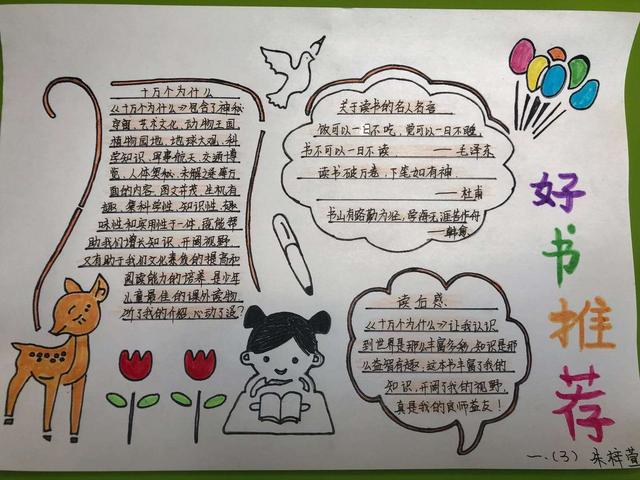 十万个为什么
《十万个为什么》包含了神秘
宇宙、艺术文化、动物王国、
植物园地、地球大观、科
学知识、军事航天、交通博
览、人体奥秘、未解之谜等方
面的内容,图文并茂,生机有
趣,集科学性、知识性、趣
味性和实用性于一体,既能帮
助我们增长知识、开阔视野,
又有助于我们文化素质的提高和
阅读能力的培养,是少年
儿童最佳的课外读物,
听了我的介绍,心动了没?
关于读书的名人名言
饭可以一日不吃,觉可以一日不睡,
书不可以一日不读 ——毛泽东
读书破万卷,下笔如有神.
——杜甫
书山有路勤为径,学海无涯苦作舟
——韩愈
读后感
《十万个为什么》让我认识
到世界是那么丰富多彩,知识是那
么益智有趣,这本书丰富了我的
知识,开阔了我的视野,
真是我的良师益友!
好
书
推
荐
一.(3) 朱梓萱